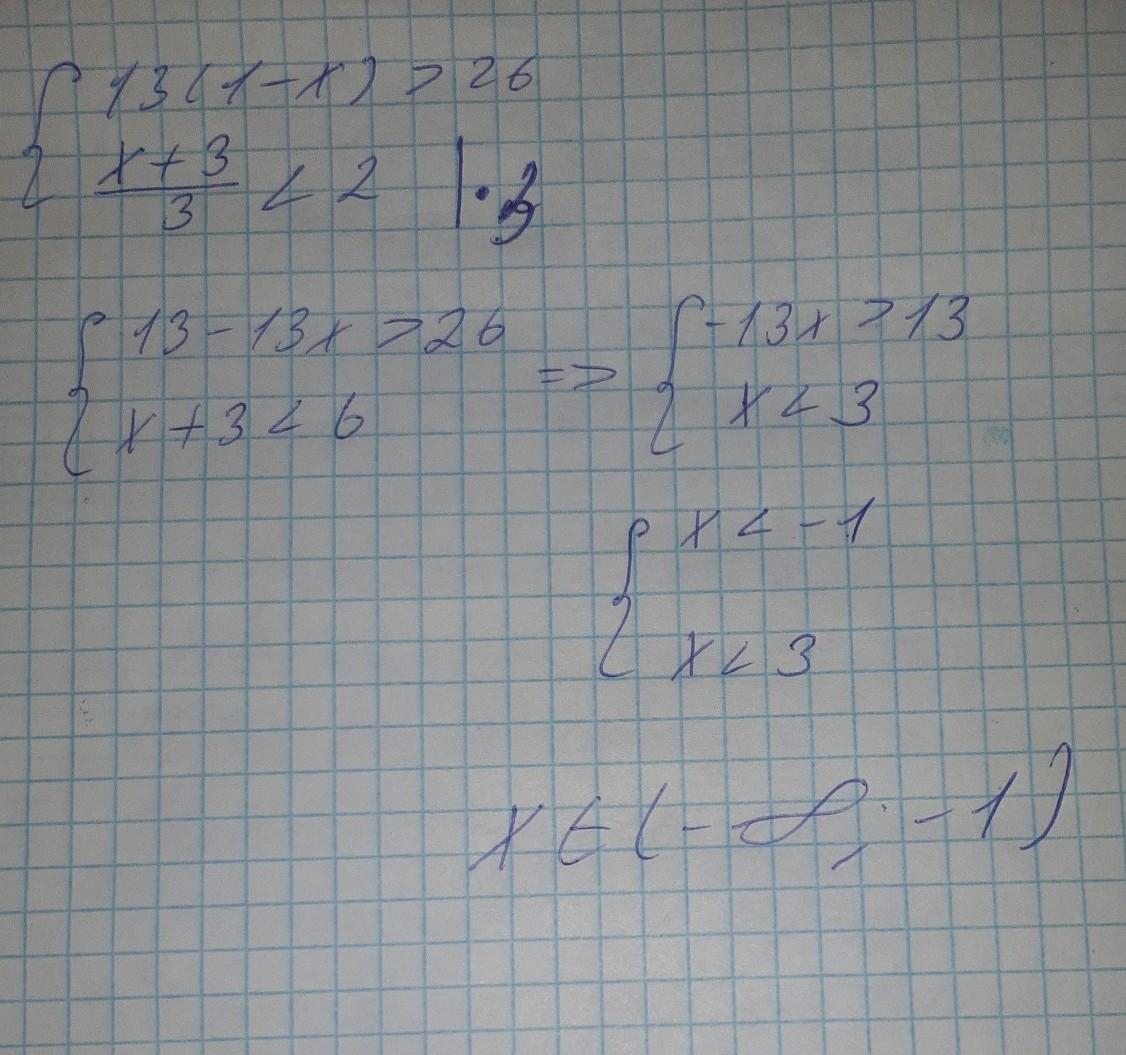 { 13(1-x) > 26
x+3/3 < 2 | · 3
{ 13-13x > 26 => { -13x > 13
x+3 < 6 x < 3
{ x < -1
x < 3
x ∈ (-∞; -1)